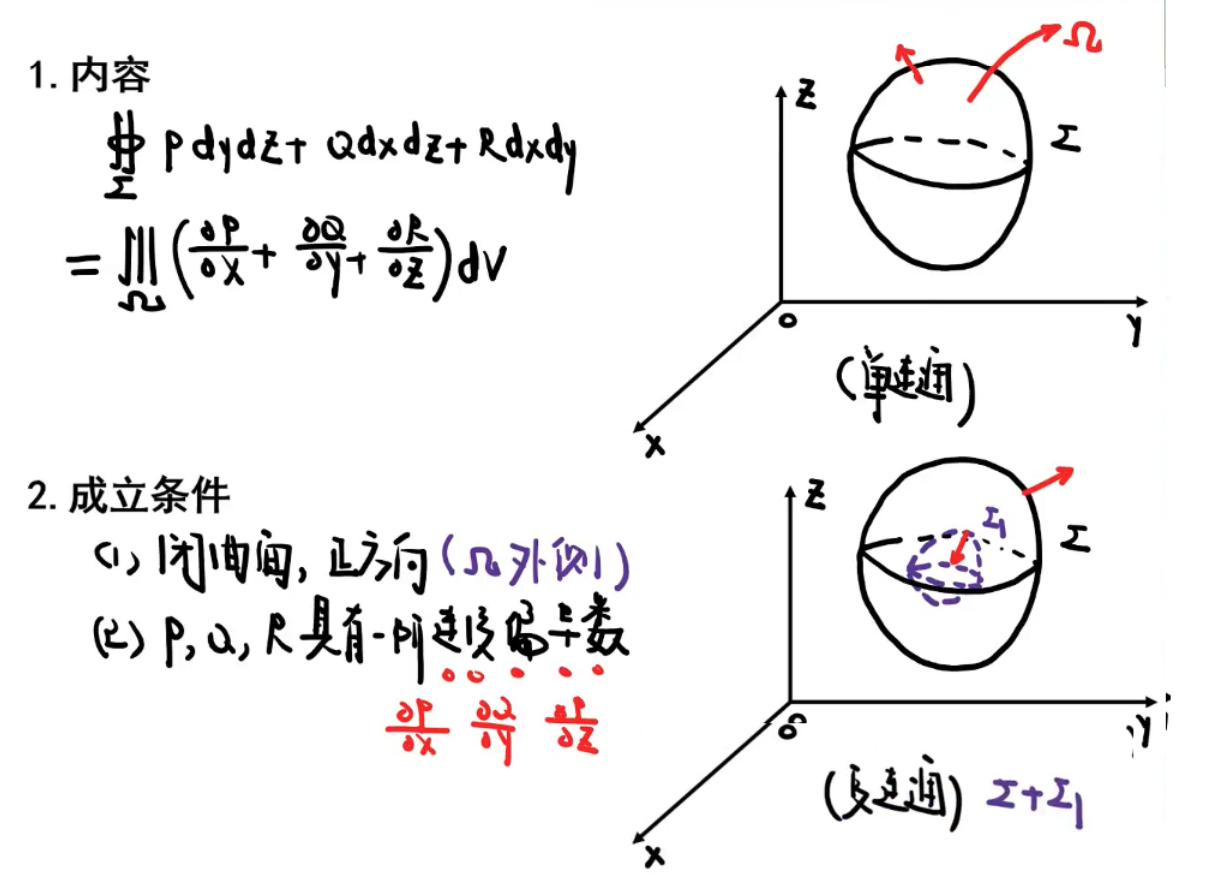 1. 内容
∯_Σ Pdydz + Qdxdz + Rdxdy
= ∭_Ω (∂P/∂x + ∂Q/∂y + ∂R/∂z) dV
Ω
Z
Σ
0
y
x
(单连通)
2. 成立条件
(1) 闭曲面, 正方向 (Ω外侧)
(2) P, Q, R 具有一阶连续偏导数
∂P/∂x ∂Q/∂y ∂R/∂z
Z
Σ₁
Σ
0
y
x
(复连通) Σ+Σ₁